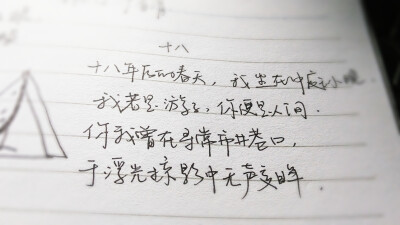 十八
十八年后的春天，我坐在中庭小憩．
我若是游子，你便是人间．
你我曾在寻常市井巷口，
于浮光掠影中无声交晖．